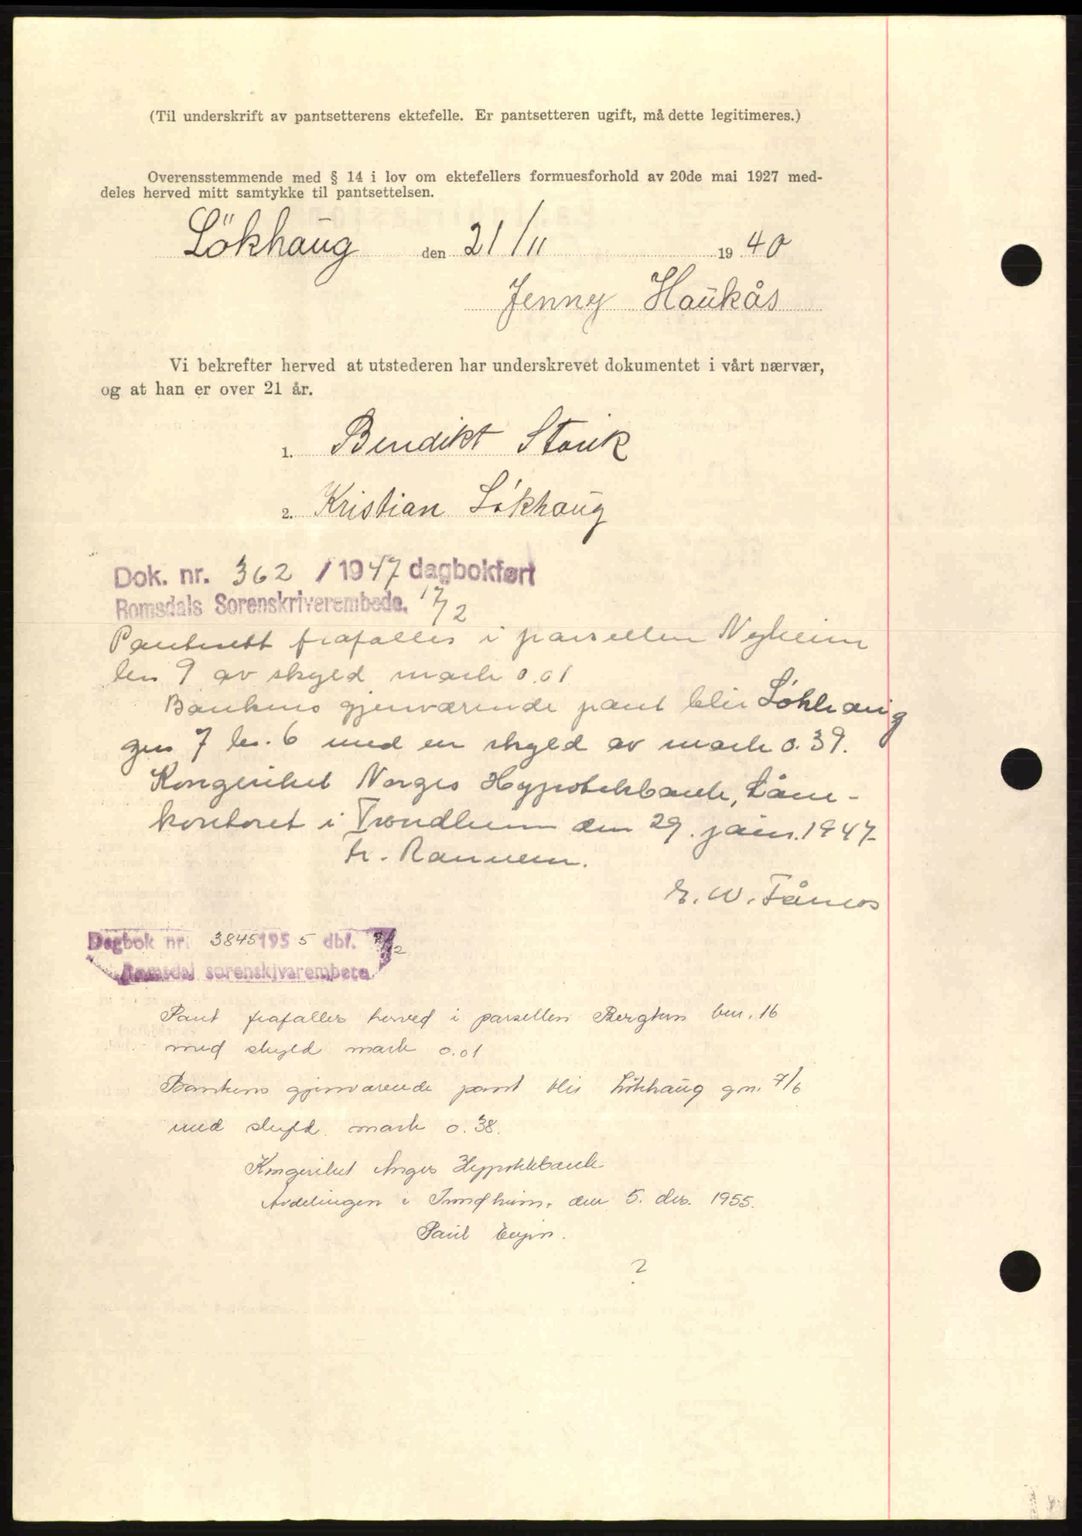 (Til underskrift av pantsetterens ektefelle. Er pantsetteren ugift, må dette legitimeres.)
Overensstemmende med § 14 i lov om ektefellers formuesforhold av 20de mai 1927 med-
deles herved mitt samtykke til pantsettelsen.
Lökhaug den 21/11 1940
Jenny Haukås
Vi bekrefter herved at utstederen har underskrevet dokumentet i vårt nærvær,
og at han er over 21 år.
1. Bendikt Storik
2. Kristian Lökhaug
Dok. nr. 362 / 1947 dagbokført
Romsdals Sorenskriverembede, 17/2
Pantrett frafalles i parsellen Nyheim
bn 9 av skyld mark 0.01
Bankens gjenværende pant blir Løkhaug
gn 7 bn. 6 med en skyld av mark 0.39.
Kongeriket Norges Hypotekbank, Låne-
kontoret i Trondheim den 29. jan. 1947
H. Rannem.
E. W. Fånes
Dagbok nr. 3845 1955 dbf. 9/12
Romsdal sorenskrivarembete
Pant frafalles herved i parsellen Bergtun bnr. 16
med skyld mark 0.01
Bankens gjenværende pant blir Lökhaug gn. 7/6
med skyld mark 0.38.
Kongeriket Norges Hypotekbank
Avdelingen i Trondheim, den 5. des. 1955.
Paul
?